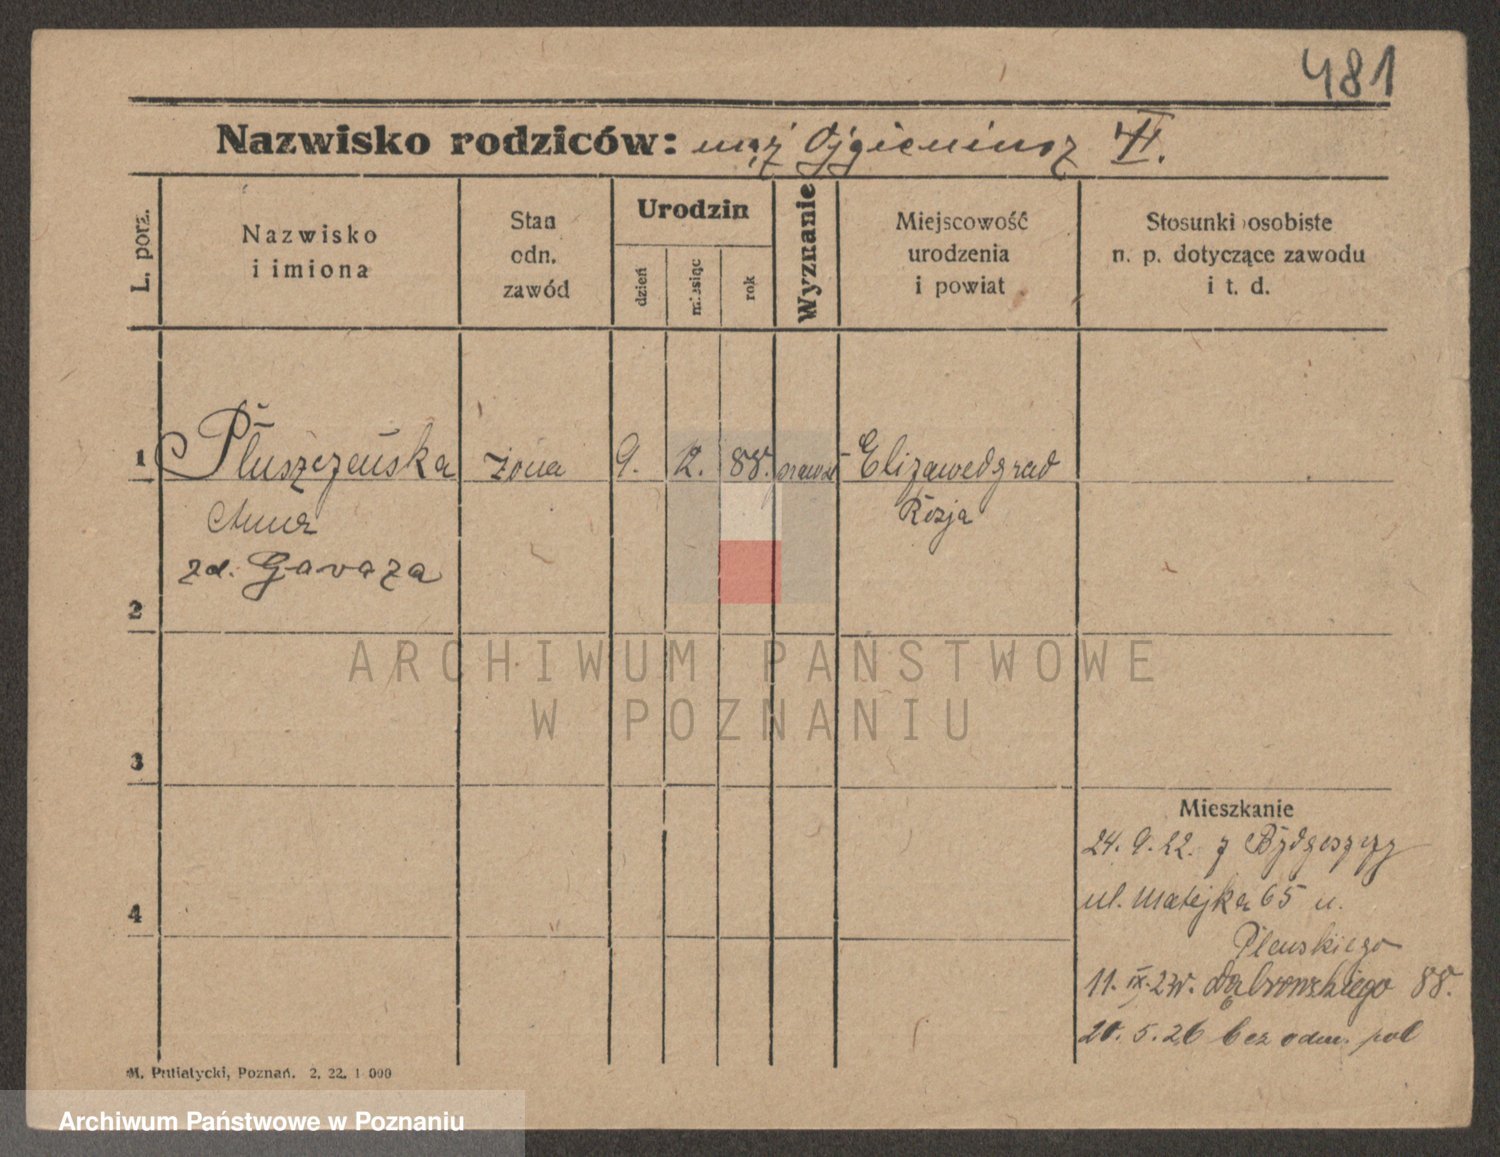 481
Nazwisko rodziców: mąż Ojgieniusz VI.
L. porz.
Nazwisko i imiona
Stan odn. zawód
Urodzin
dzień
miesiąc
rok
Wyznanie
Miejscowość urodzenia i powiat
Stosunki osobiste n. p. dotyczące zawodu i t. d.
1 Pluszczeńska żona 9. 12. 88. prawosł Elizawedgrad
Anna Rosja
zd. Gavaza
2
ARCHIWUM PAŃSTWOWE
W POZNANIU
3
Mieszkanie
24. 9. 22. z Bydgoszczy
4 ul. Matejka 65 u.
Plenskiego
11. IX. 23r. Dąbrowskiego 88.
20. 5. 26 bez odm. pol
M. Putiatycki, Poznań. 2. 22. 1 000
Archiwum Państwowe w Poznaniu